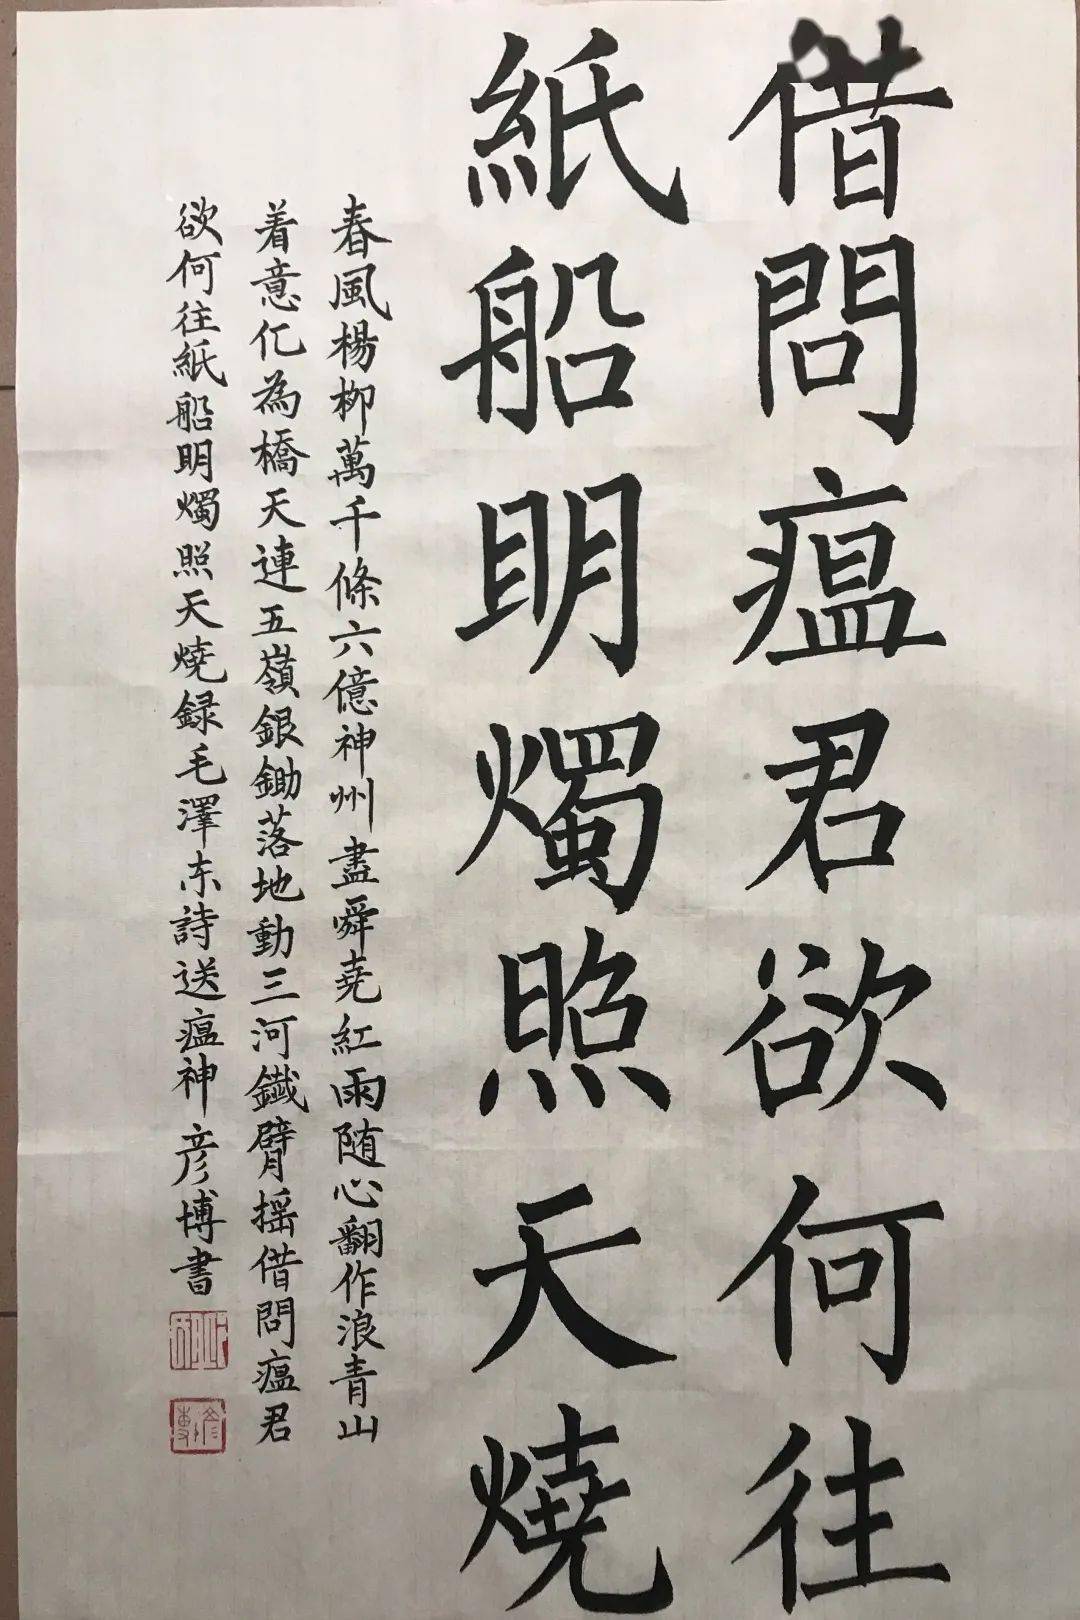 借問瘟君欲何往
紙船明燭照天燒
春風楊柳萬千條六億神州盡舜尭紅雨随心翻作浪青山
着意化為橋天連五嶺銀鋤落地動三河鐵臂揺借問瘟君
欲何往紙船明燭照天燒録毛澤东詩送瘟神彦博書
彦博